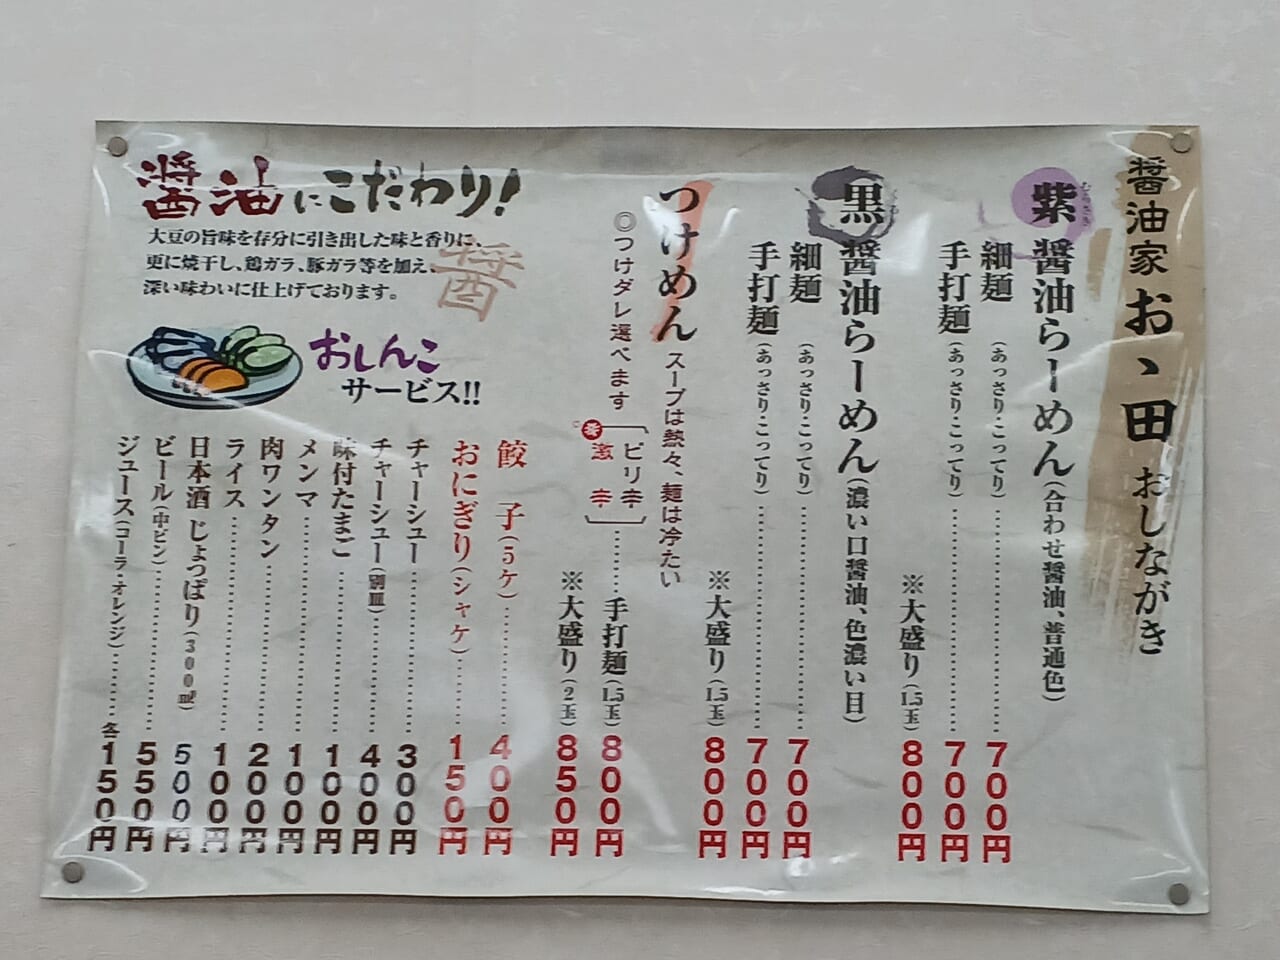 醤油家 お、田 おしながき
紫 醤油らーめん(合わせ醤油、普通色)
むらさき
細麺(あっさり・こってり)………700円
手打麺(あっさり・こってり)………700円
※大盛り(1.5玉)800円
黒 醤油らーめん(濃い口醤油、色濃い目)
細麺(あっさり・こってり)………700円
手打麺(あっさり・こってり)………700円
※大盛り(1.5玉)800円
つけめん スープは熱々、麺は冷たい
◎つけダレ選べます
ピリ辛
激辛
………手打麺(1.5玉)800円
※大盛り(2玉)850円
餃子(5ケ)………400円
おにぎり(シャケ)………150円
醤油にこだわり!
大豆の旨味を存分に引き出した味と香りに、
更に焼干し、鶏ガラ、豚ガラ等を加え、
深い味わいに仕上げております。
醤
おしんこ
サービス!!
チャーシュー………300円
チャーシュー(別皿)………400円
味付たまご………100円
メンマ………100円
肉ワンタン………200円
ライス………100円
日本酒 じょっぱり(300㎖)500円
ビール(中ビン)………550円
ジュース(コーラ・オレンジ)………各150円